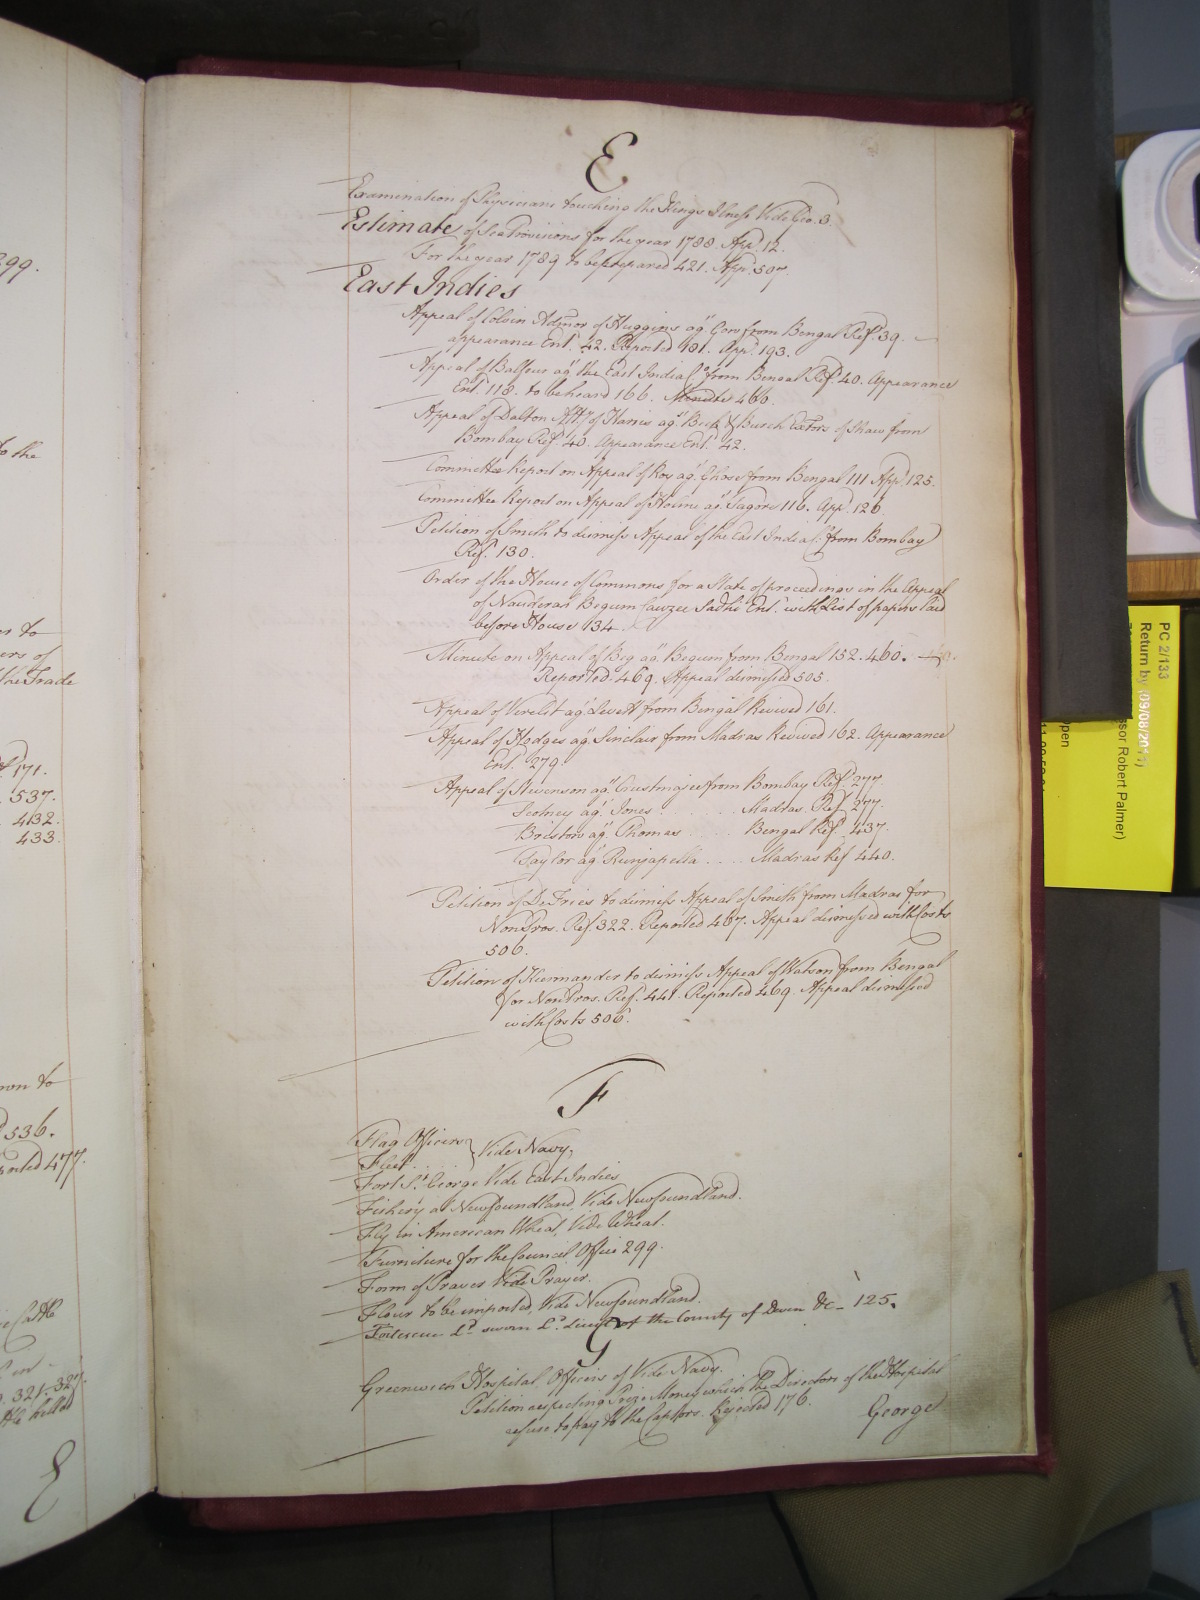 299.
to the
ers of
the Trade
171.
537.
432.
433.
536.
477.
321. 327.
E
E
Examination of Physicians touching the Kings Illness Vide Geo. 3.
Estimate of Sea Provisions for the year 1788 App.d 12.
For the year 1789 to be prepared 421. App.d 507.
East Indies
Appeal of Colvin Admor of Huggins ag.t Gow from Bengal Ref.d 39.
appearance Ent.d 42. Reported 181. App.d 193.
Appeal of Balfour ag.t the East India C.o from Bengal Ref.d 40. Appearance
Ent.d 118. to be heard 166. Minute 466.
Appeal of Dalton Att.y of Harris ag.t Beck & Burch Exors of Shaw from
Bombay Ref.d 40. Appearance Ent.d 42.
Committee Report on Appeal of Roy ag.t Ghose from Bengal 111 App.d 125.
Committee Report on Appeal of Holme ag.t Tagore 116. App.d 126
Petition of Smith to dismiss Appeal of the East India C.o from Bombay
Ref.d 130.
Order of the House of Commons for a State of proceedings in the Appeal
of Nauderah Begum Cawzee Sadhi Ent.d with List of papers laid
before House 134.
Minute on Appeal of Beg ag.t Begum from Bengal 152. 460.
Reported 469. Appeal dismissed 505.
Appeal of Verelst ag.t Levett from Bengal Revived 161.
Appeal of Hodges ag.t Sinclair from Madras Revived 162. Appearance
Ent.d 279.
Appeal of Stevenson ag.t from Bombay Ref.d 277.
ag.t Jones . . . . Madras Ref.d 277.
Bristow ag.t Thomas . . . . Bengal Ref.d 437.
Taylor ag.t Runjapella . . . . Madras Ref 440.
Petition of De Fries to dismiss Appeal of Smith from Madras for
Non Pros. Ref.d 322. Reported 467. Appeal dismissed with Costs
506.
Petition of Kiernander to dismiss Appeal of Watson from Bengal
for Non Pros. Ref.d 441. Reported 469. Appeal dismissed
with Costs 506.
F
Flag Officers } Vide Navy.
Fleet
Fort S.t George Vide East Indies
Fishery at Newfoundland, Vide Newfoundland.
Fly in American Wheat, Vide Wheat.
Furniture for the Council Office 299.
Form of Prayer Vide Prayer.
Flour to be imported, Vide Newfoundland.
Fortescue L.d sworn L.d Lieut of the County of Devon &c - 125.
G
Greenwich Hospital Officers of Vide Navy.
Petition respecting Prize Money which the Directors of the Hospital
refuse to pay to the Captors. Rejected 176.
George
PC 2/133
Return by (09/08/2011)
ssor Robert Palmer)